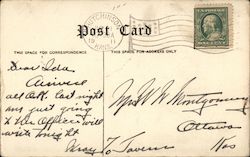 HUTCHINSON
KANS.
Post Card
THIS SPACE FOR CORRESPONDENCE
THIS SPACE FOR ADDRESS ONLY
Dear Ida
Arrived
all O.K. last night
am just going
to the Office will
write tonight
Mrs W H Montgomery
Ottawa
Kas